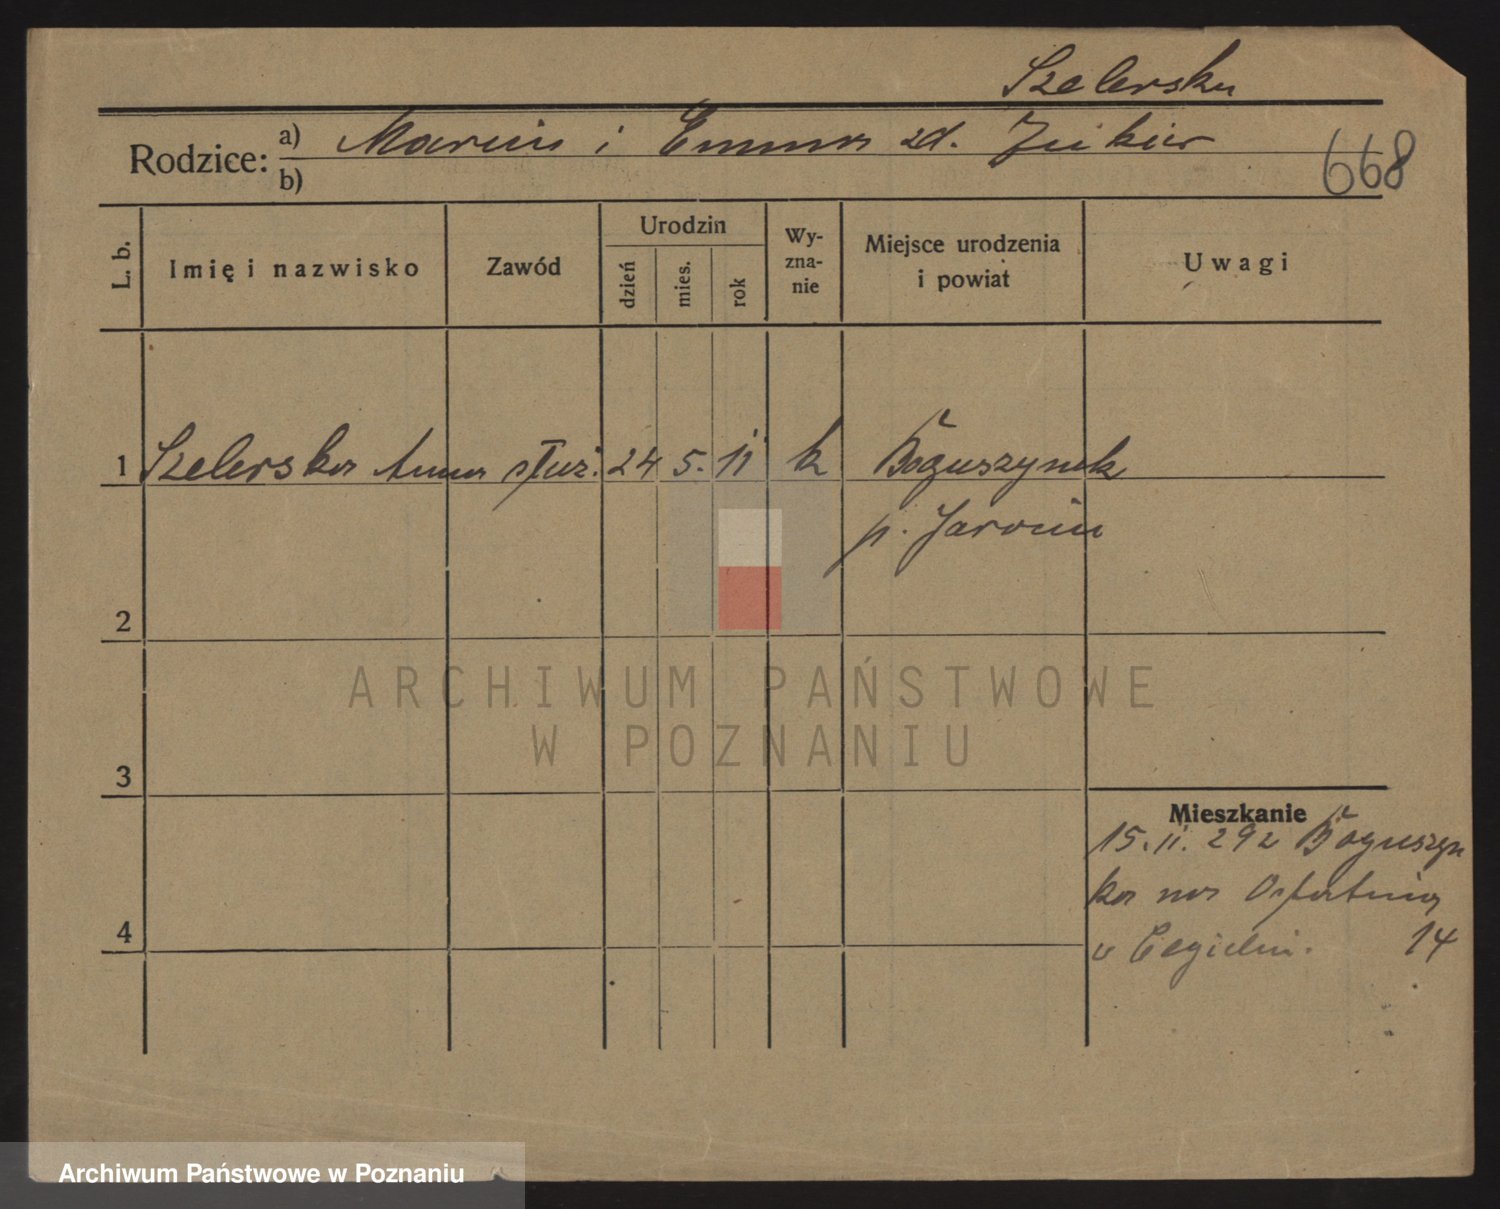 Szelerska
Rodzice: a) Marcin i Emma zd.
b)
668
L. b. Imię i nazwisko Zawód Urodzin dzień mies. rok Wy-zna-nie Miejsce urodzenia i powiat Uwagi
1 Szelerska Anna służ. 24 5. 11 k Boguszynek
p. Jarocin
2
3
4
Mieszkanie
15.11.29 z Boguszyn
ka na Ostatnia
u Cegielni. 14
ARCHIWUM PAŃSTWOWE
W POZNANIU
Archiwum Państwowe w Poznaniu